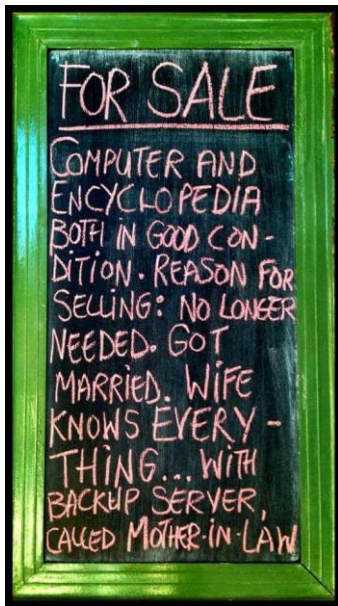 FOR SALE
COMPUTER AND
ENCYCLOPEDIA
BOTH IN GOOD CON-
DITION. REASON FOR
SELLING: NO LONGER
NEEDED. GOT
MARRIED. WIFE
KNOWS EVERY-
THING... WITH
BACKUP SERVER,
CALLED MOTHER-IN-LAW